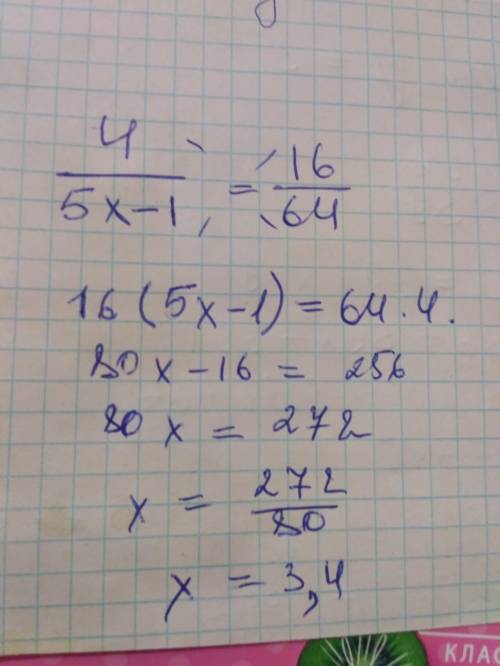 4/(5x-1) = 16/64
16(5x-1) = 64·4.
80x-16 = 256
80x = 272
x = 272/80
x = 3,4
КЛАС